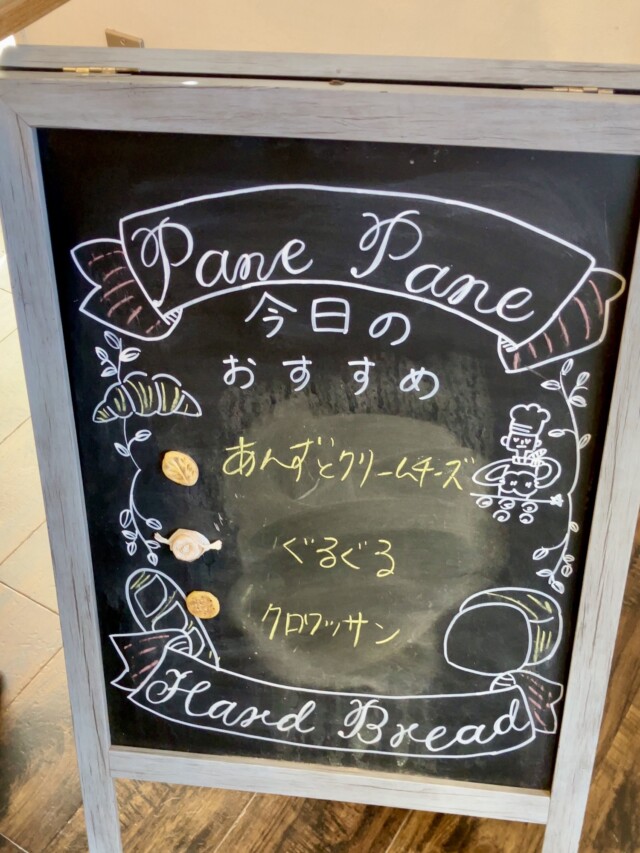 Pane Pane
今日の
おすすめ
あんずとクリームチーズ
ぐるぐる
クロワッサン
Hard Bread